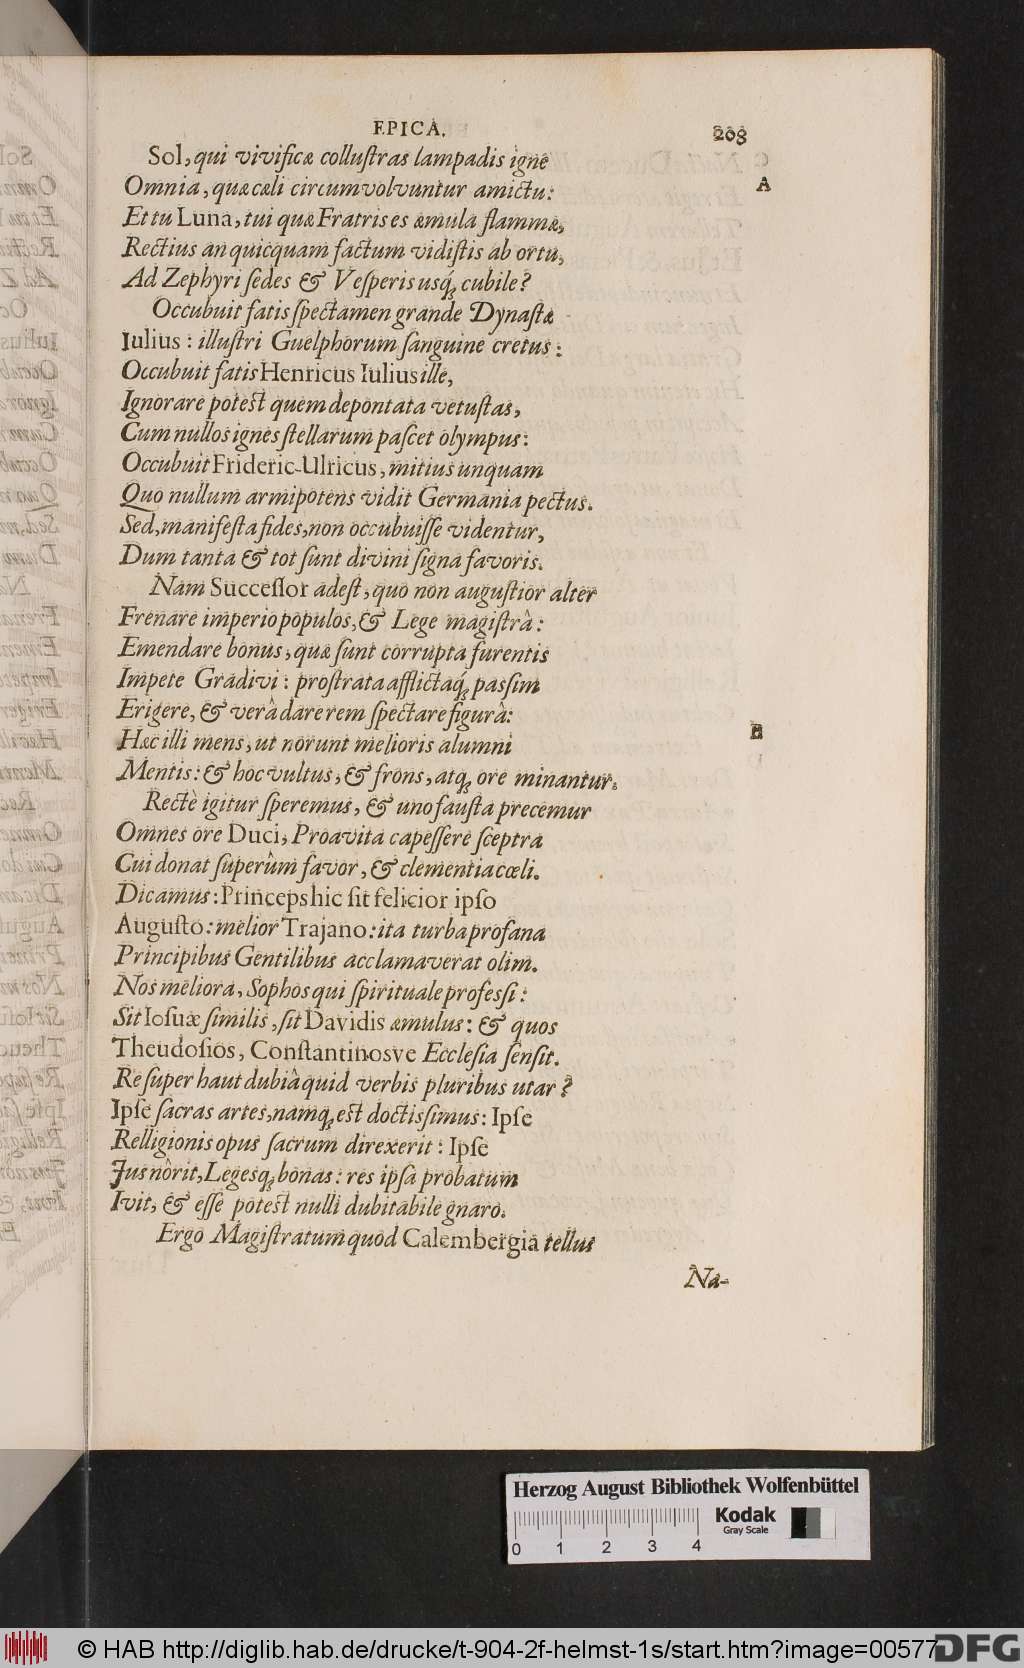 EPICA. 208
Sol, qui vivificæ collustras lampadis igne
A
Omnia, quæ cæli circumvolvuntur amictu:
Et tu Luna, tui quæ Fratris es æmula flammæ,
Rectius an quicquam factum vidistis ab ortu,
Ad Zephyri sedes & Vesperis usq; cubile?
Occubuit fatis spectamen grande Dynastæ
Iulius: illustri Guelphorum sanguine cretus:
Occubuit fatis Henricus Iulius ille,
Ignorare potest quem depontata vetustas,
Cum nullos ignes stellarum pascet olympus:
Occubuit Frideric-Ulricus, mitius unquam
Quo nullum armipotens vidit Germania pectus.
Sed, manifesta fides, non occubuisse videntur,
Dum tanta & tot sunt divini signa favoris.
Nam Successor adest, quo non augustior alter
Frenare imperio populos, & Lege magistrâ:
Emendare bonus, quæ sunt corrupta furentis
Impete Gradivi: prostrata afflictaq; passim
Erigere, & verâ dare rem spectare figurâ:
B
Hæc illi mens, ut norunt melioris alumni
Mentis: & hoc vultus, & frons, atq; ore minantur.
Rectè igitur speremus, & uno fausta precemur
Omnes ore Duci, Proavita capessere sceptra
Cui donat superûm favor, & clementia cœli.
Dicamus: Princeps hic sit felicior ipso
Augusto: melior Trajano: ita turba profana
Principibus Gentilibus acclamaverat olim.
Nos meliora, Sophos qui spirituale professi:
Sit Iosuæ similis, sit Davidis æmulus: & quos
Theudosios, Constantinosve Ecclesia sensit.
Re super haut dubiâ quid verbis pluribus utar?
Ipse sacras artes, namq; est doctissimus: Ipse
Relligionis opus sacrum direxerit: Ipse
Jus nôrit, Legesq; bonas: res ipsa probatum
Ivit, & esse potest nulli dubitabile gnaro.
Ergo Magistratum quod Calembergia tellus
Na-
Herzog August Bibliothek Wolfenbüttel
Kodak
Gray Scale
0 1 2 3 4
© HAB http://diglib.hab.de/drucke/t-904-2f-helmst-1s/start.htm?image=00577
DFG